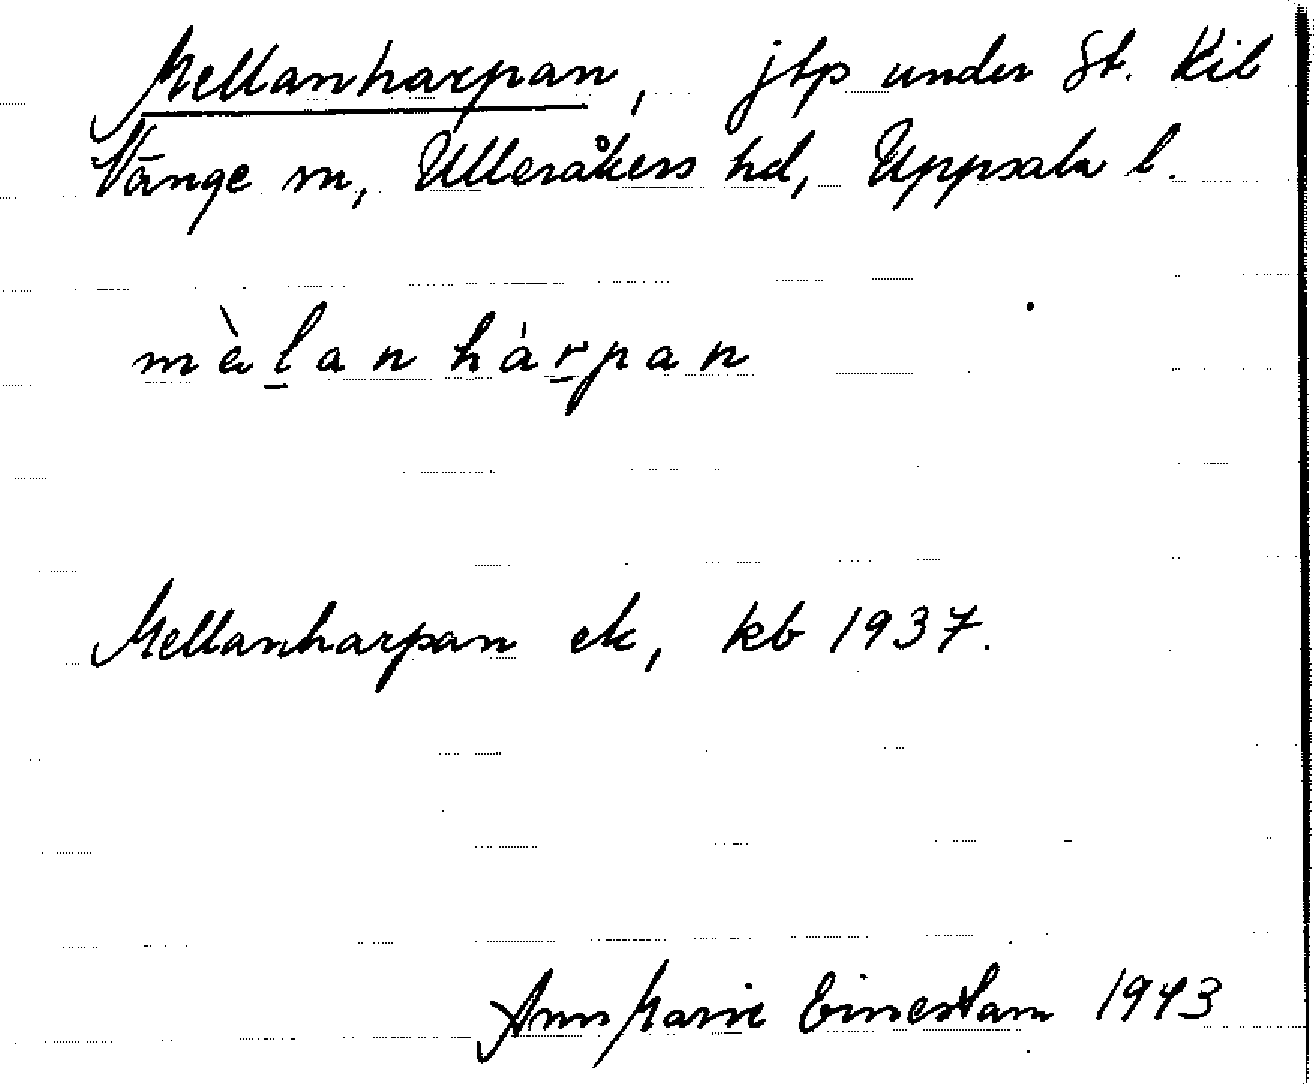 Mellanharpan, jtp under St. Kil
Vänge sn, Ulleråkers hd, Uppsala l.
mèlan hárpan
Mellanharpan ek, kb 1937.
Ann Marie Einestam 1943